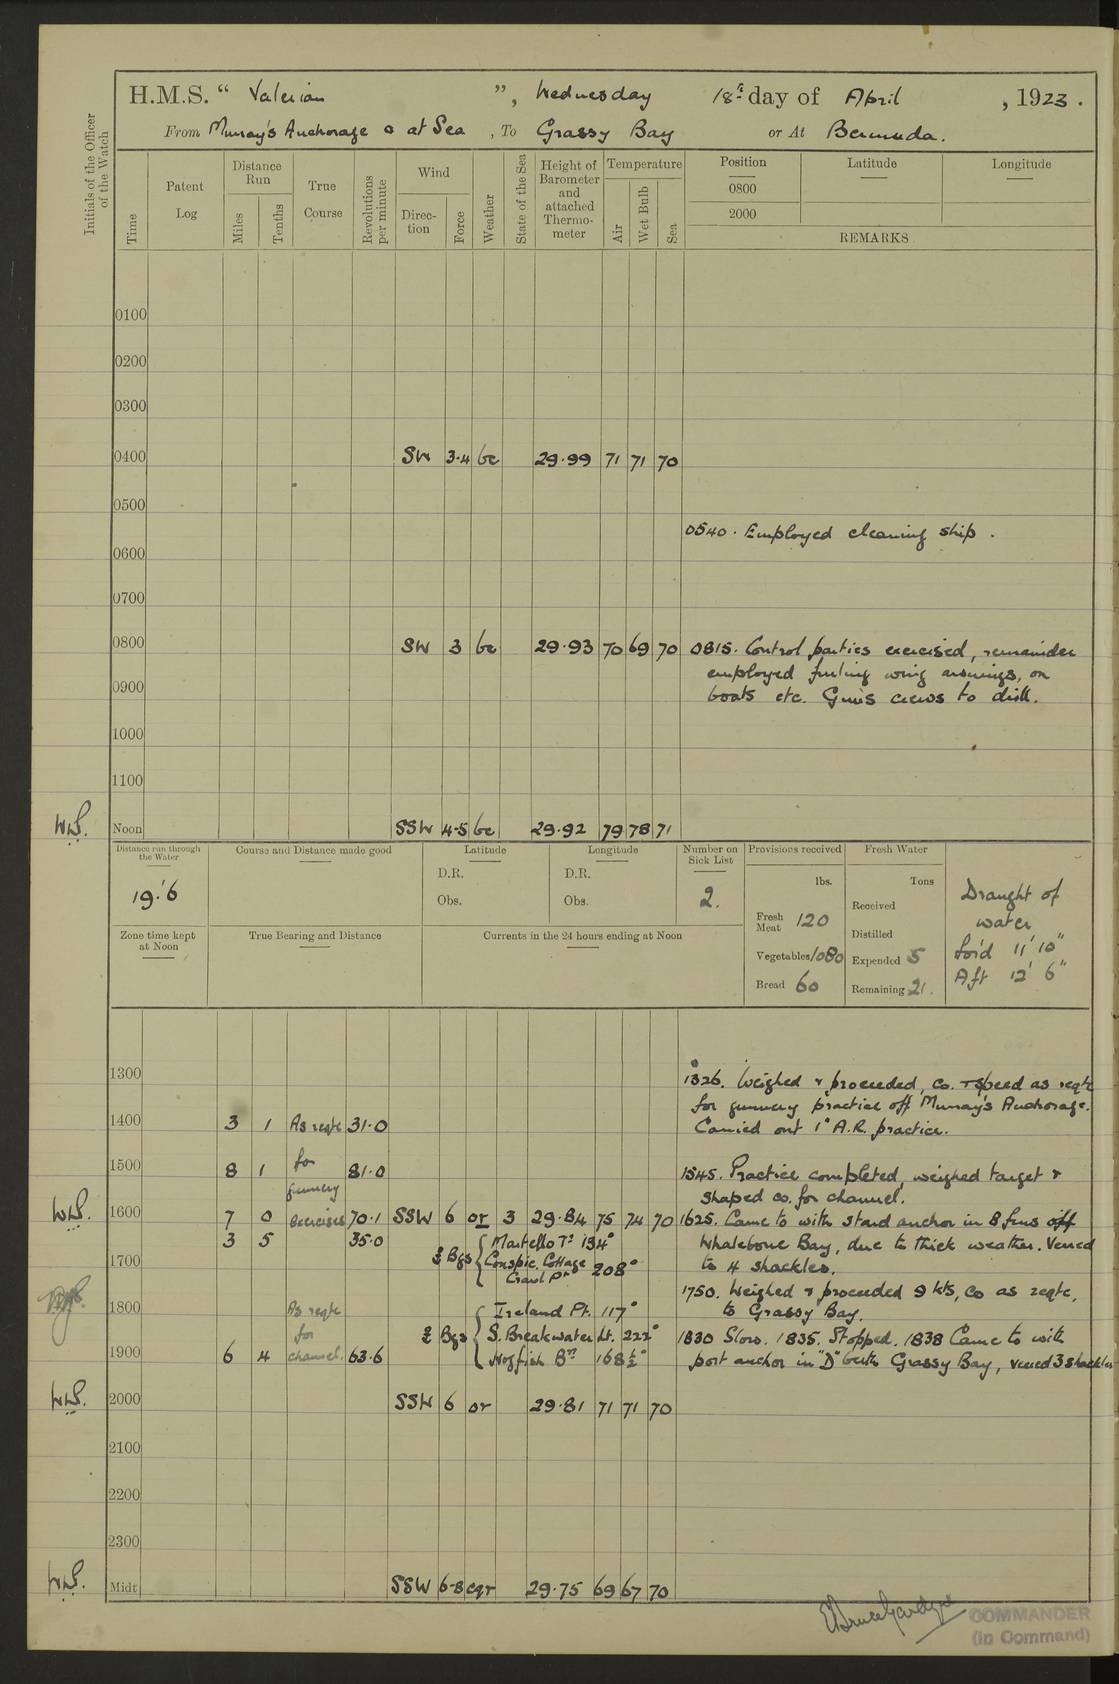 H.M.S. “ Valerian ”, Wednesday 18th day of April , 1923.
From Murray's Anchorage & at Sea , To Grassy Bay or At Bermuda.
Initials of the Officer of the Watch
Time
Patent Log
Distance Run
Miles
Tenths
True Course
Revolutions per minute
Wind
Direction
Force
Weather
State of the Sea
Height of Barometer and attached Thermometer
Temperature
Air
Wet Bulb
Sea
Position
Latitude
Longitude
0800
2000
REMARKS
0100
0200
0300
0400 SW 3·4 bc 29·99 71 71 70
0500
0540. Employed cleaning ship.
0600
0700
0800 SW 3 bc 29·93 70 69 70 0815. Control parties exercised, remainder
employed furling wing awnings, on
0900 boats etc. Guns crews to drill.
1000
1100
W.S. Noon SSW 4-5 bc 29·92 79 78 71
Distance run through the Water
19·'6
Course and Distance made good
Latitude
D.R.
Obs.
Longitude
D.R.
Obs.
Number on Sick List
2.
Provisions received
lbs.
Fresh Meat 120
Vegetables 1080
Bread 60
Fresh Water
Tons
Received
Distilled
Expended 5
Remaining 21.
Draught of
water
For'd 11' 10"
Aft 12' 6"
Zone time kept at Noon
True Bearing and Distance
Currents in the 24 hours ending at Noon
1300 1326. Weighed & proceeded, co. & speed as reqte
for gunnery practice off Murray's Anchorage.
1400 3 1 As reqte 31·0 Carried out 1" A.R. practice.
1500 8 1 for 81·0 1545. Practice completed, weighed target &
gunnery shaped co. for channel.
W.S. 1600 7 0 exercises 70·1 SSW 6 or 3 29·84 75 74 70 1625. Came to with stard anchor in 8 fms off
3 5 35·0 Bgs Martello Tr 194° Whalebone Bay, due to thick weather. Veered
1700 Conspic. Cottage Crawl Pt 208° to 4 shackles.
1750. Weighed & proceeded 9 kts, co as reqte,
1800 As reqte Ireland Pt. 117° to Grassy Bay.
for Bgs S. Breakwater Lt. 222° 1830 Slow. 1835. Stopped. 1838 Came to with
1900 6 4 channel. 63·6 Hogfish Bn 168½° port anchor in "D" berth Grassy Bay, veered 3 shackles
W.S. 2000 SSW 6 or 29·81 71 71 70
2100
2200
2300
W.S. Midt SSW 6-8 cqr 29·75 69 67 70
COMMANDER
(in Command)